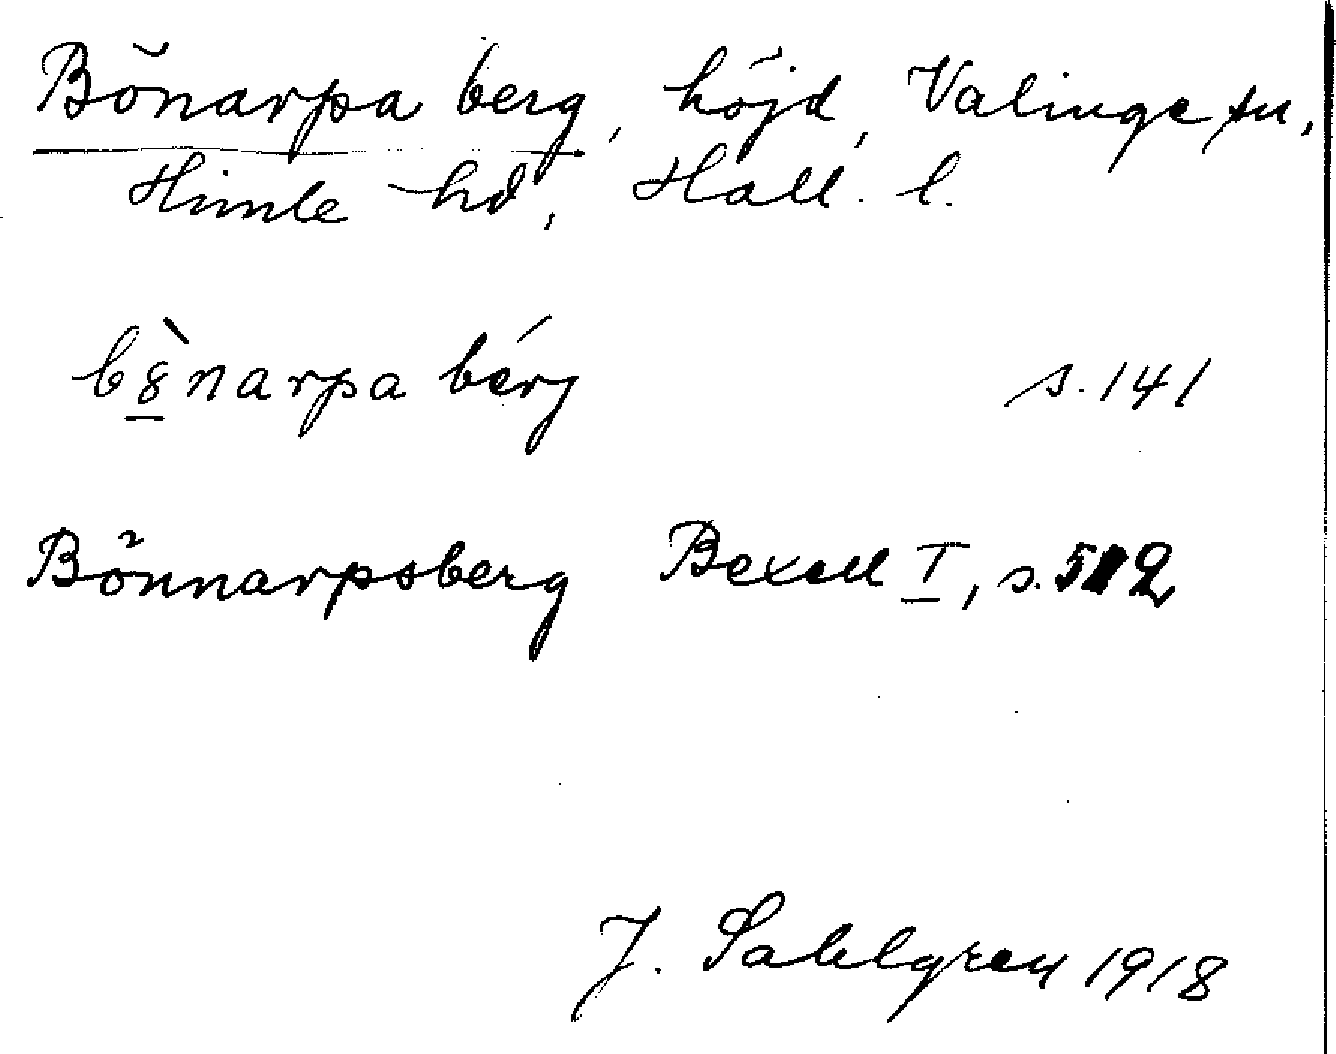 Bönarpa berg, höjd, Valinge sn,
Himle hd, Hall. l.
b8̲̀narpa bérj s. 141
Bönnarpsberg Bexell I, s. 512
J. Sahlgren 1918